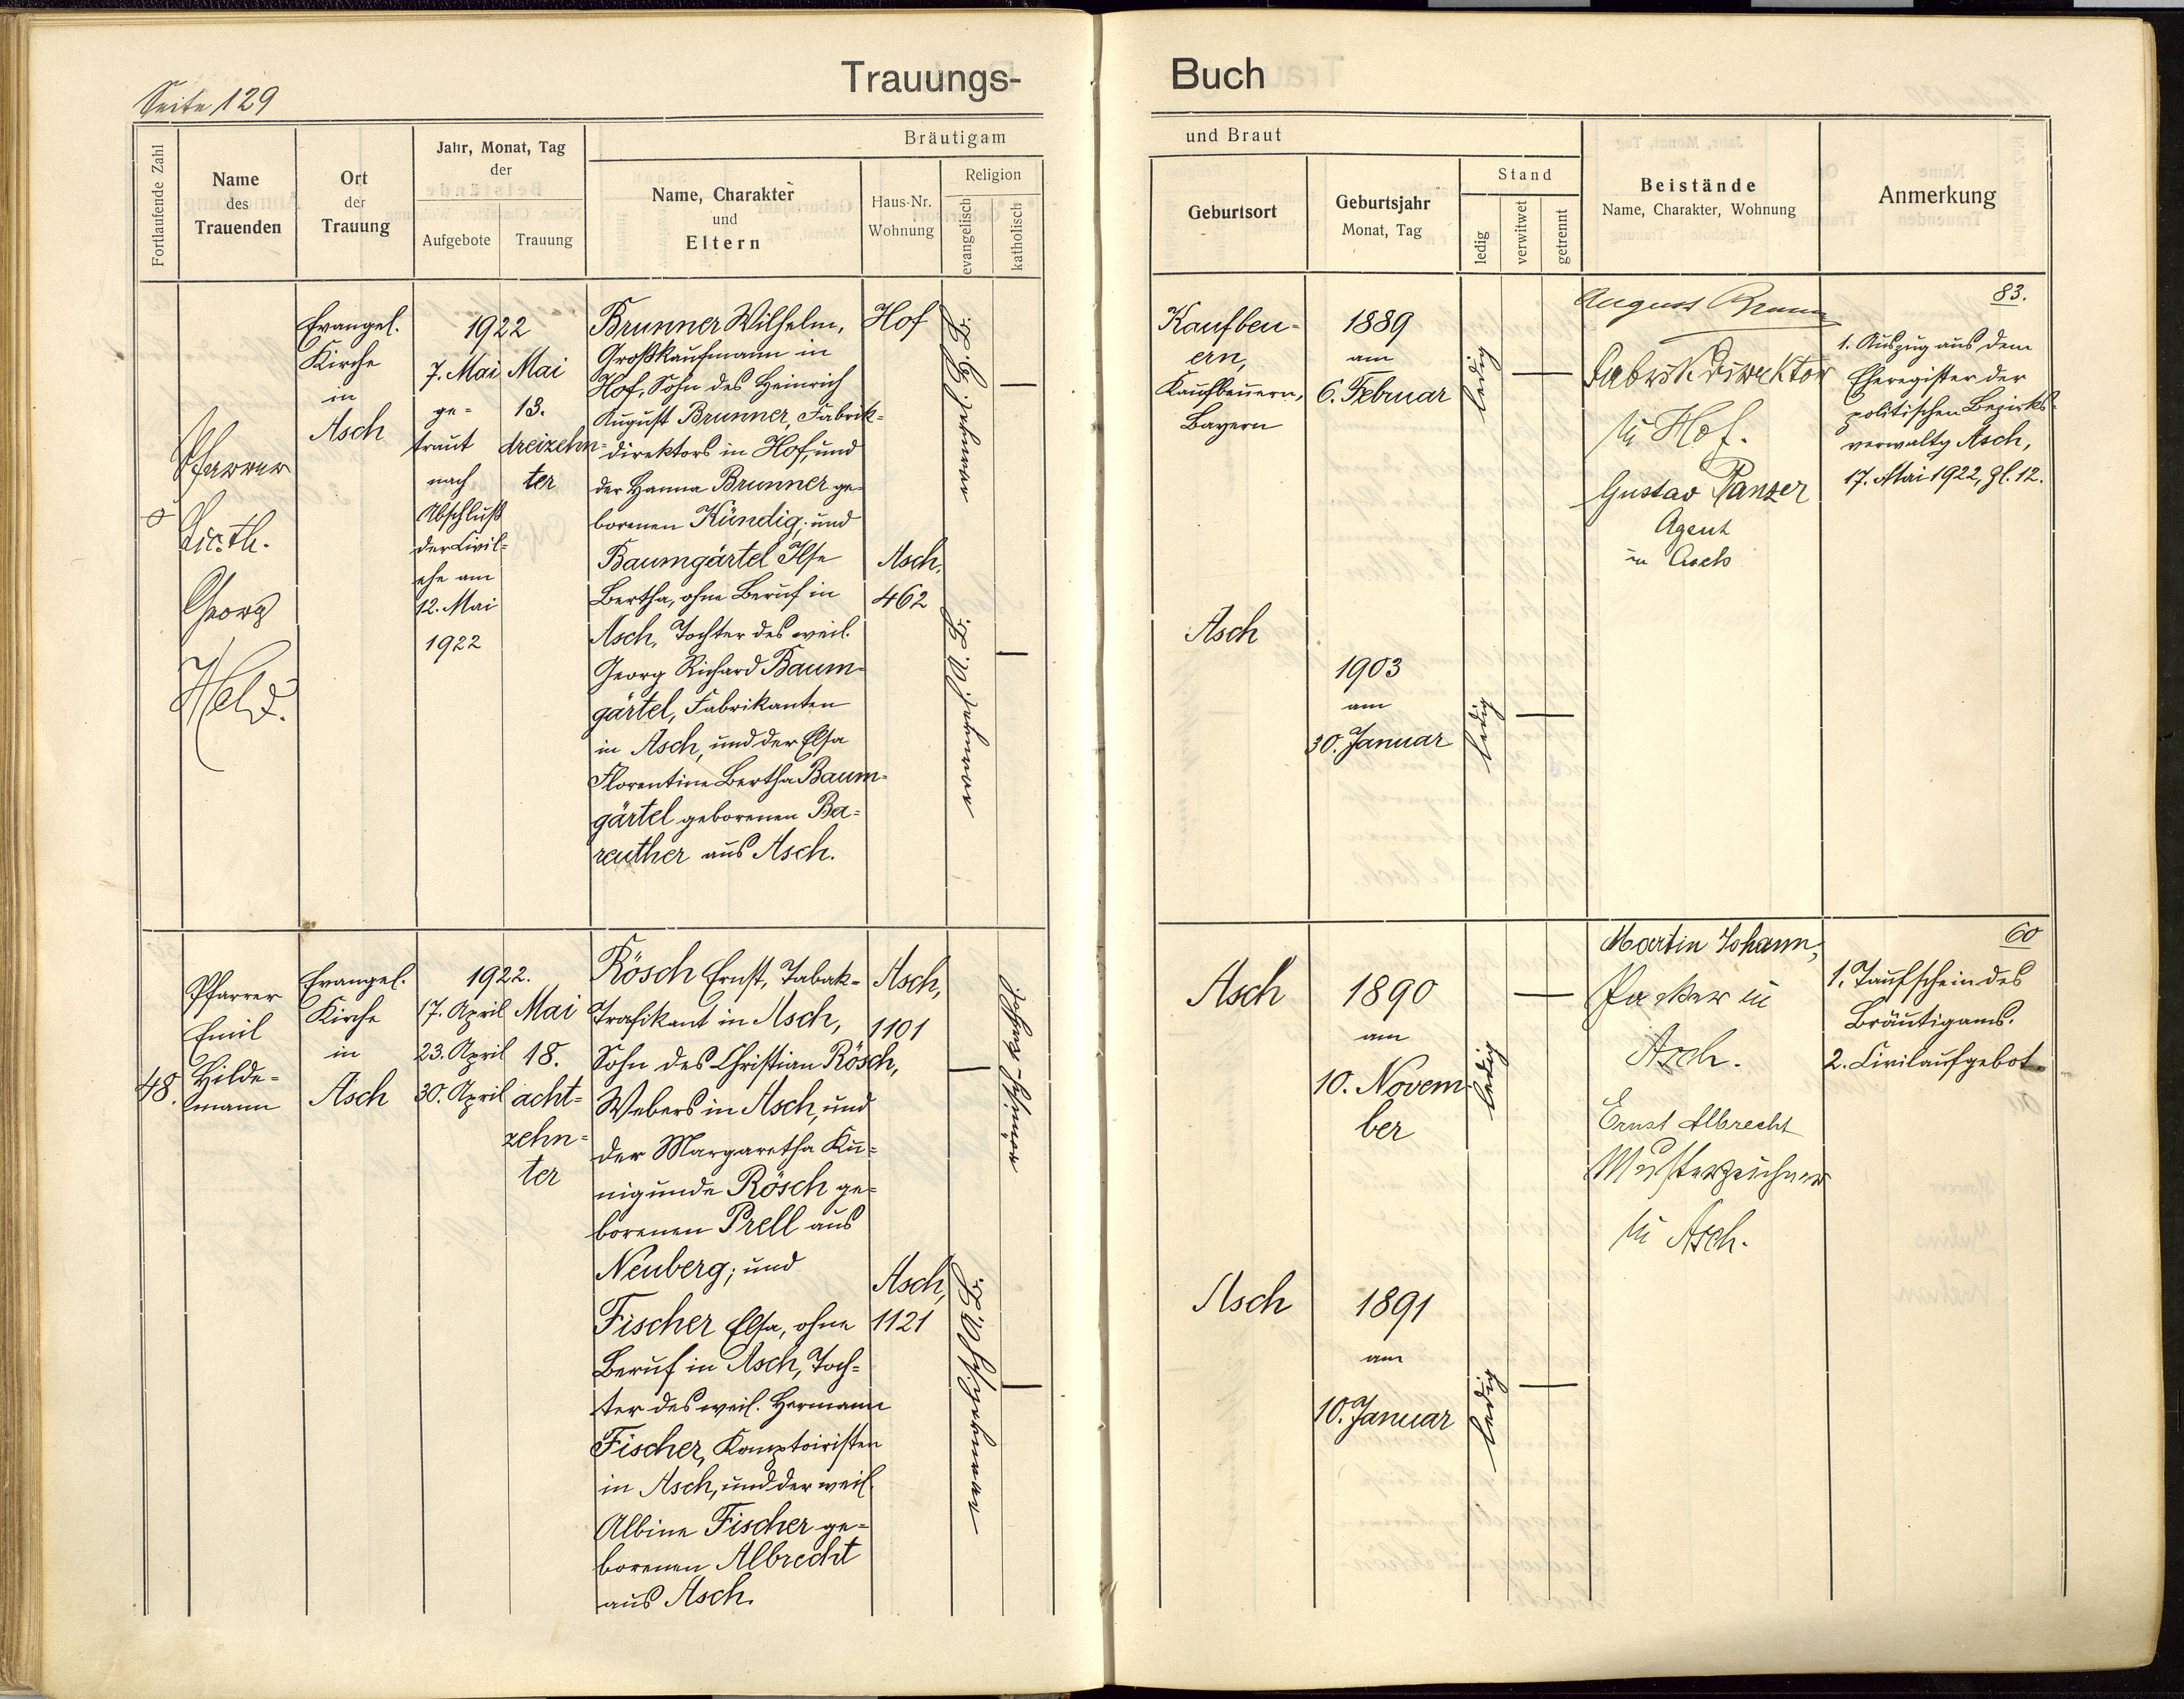 Seite 129
Trauungs-
Buch
Fortlaufende Zahl
Name
des
Trauenden
Ort
der
Trauung
Jahr, Monat, Tag
der
Aufgebote
Trauung
Bräutigam
Name, Charakter
und
Eltern
Haus-Nr.
Wohnung
Religion
evangelisch
katholisch
und Braut
Geburtsort
Geburtsjahr
Monat, Tag
Stand
ledig
verwitwet
getrennt
Beistände
Name, Charakter, Wohnung
Anmerkung
Pfarrer
Georg
Held.
Evangel.
Kirche
in
Asch
1922
7. Mai
ge=
traut
nach
Abschluß
der Civil=
ehe am
12. Mai
1922
Mai
13.
dreizehn=
ter
Brunner Wilhelm,
Großkaufmann in
Hof, Sohn des Heinrich
August Brunner, Fabrik=
direktors in Hof, und
der Hanna Brunner ge=
borenen Kündig; und
Baumgärtel Ilse
Bertha, ohne Beruf in
Asch, Tochter des weil.
Georg Richard Baum=
gärtel, Fabrikanten
in Asch, und der Elsa
Florentine Bertha Baum=
gärtel geborenen Ba=
reuther aus Asch.
Hof
Asch,
462
Kaufbeu=
ern,
Kaufbeuern,
Bayern
1889
am
6. Februar
ledig
Asch
1903
am
30. Januar
ledig
August
Fabrikdirektor
in Hof.
Gustav Panzer
Agent
in Asch
83.
1. Auszug aus dem
Eheregister der
politischen Bezirks=
verwaltg Asch,
17. Mai 1922, Zl. 12.
48.
Pfarrer
Emil
Hilde=
mann
Evangel.
Kirche
in
Asch
1922.
17. April
23. April
30. April
Mai
18.
acht=
zehn=
ter
Rösch Ernst, Tabak=
Trafikant in Asch,
Sohn des Christian Rösch,
Webers in Asch, und
der Margaretha Ku=
nigunde Rösch ge=
borenen Prell aus
Neuberg; und
Fischer Elsa, ohne
Beruf in Asch, Toch=
ter des weil. Hermann
Fischer, Komptoiristen
in Asch, und der weil.
Albine Fischer ge=
borenen Albrecht
aus Asch.
Asch,
1101
Asch,
1121
Asch
1890
am
10. Novem
ber
ledig
Asch
1891
am
10. Januar
ledig
Martin Johann,
Packer in
Asch.
Ernst Albrecht
Musterzeichner
in Asch.
60
1. Taufschein des
Bräutigams.
2. Civilaufgebot.